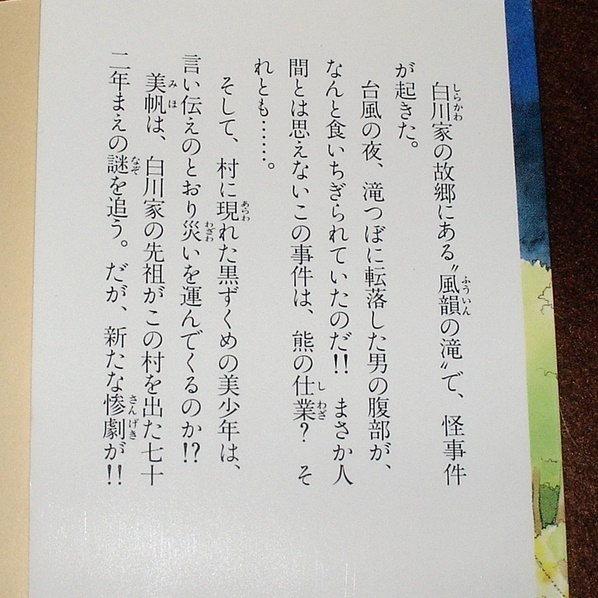 白川家の故郷にある〝風韻の滝〟で、怪事件
が起きた。
台風の夜、滝つぼに転落した男の腹部が、
なんと食いちぎられていたのだ!! まさか人
間とは思えないこの事件は、熊の仕業? そ
れとも……。
そして、村に現れた黒ずくめの美少年は、
言い伝えのとおり災いを運んでくるのか!?
美帆は、白川家の先祖がこの村を出た七十
二年まえの謎を追う。だが、新たな惨劇が!!